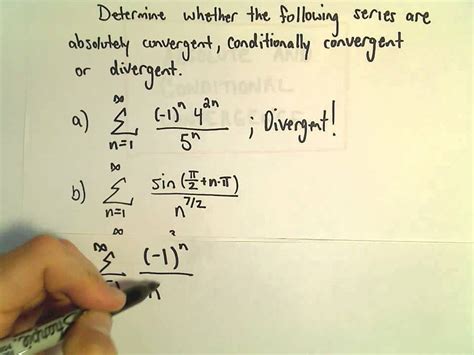 Determine whether the following series are
absolutely convergent, conditionally convergent
or divergent.
a) ∞ Σ n=1 (-1)^n 4^{2n} / 5^n ; Divergent!
b) ∞ Σ n=1 sin(π/2 + n·π) / n^{7/2}
∞ Σ (-1)^n / n
Sharpie